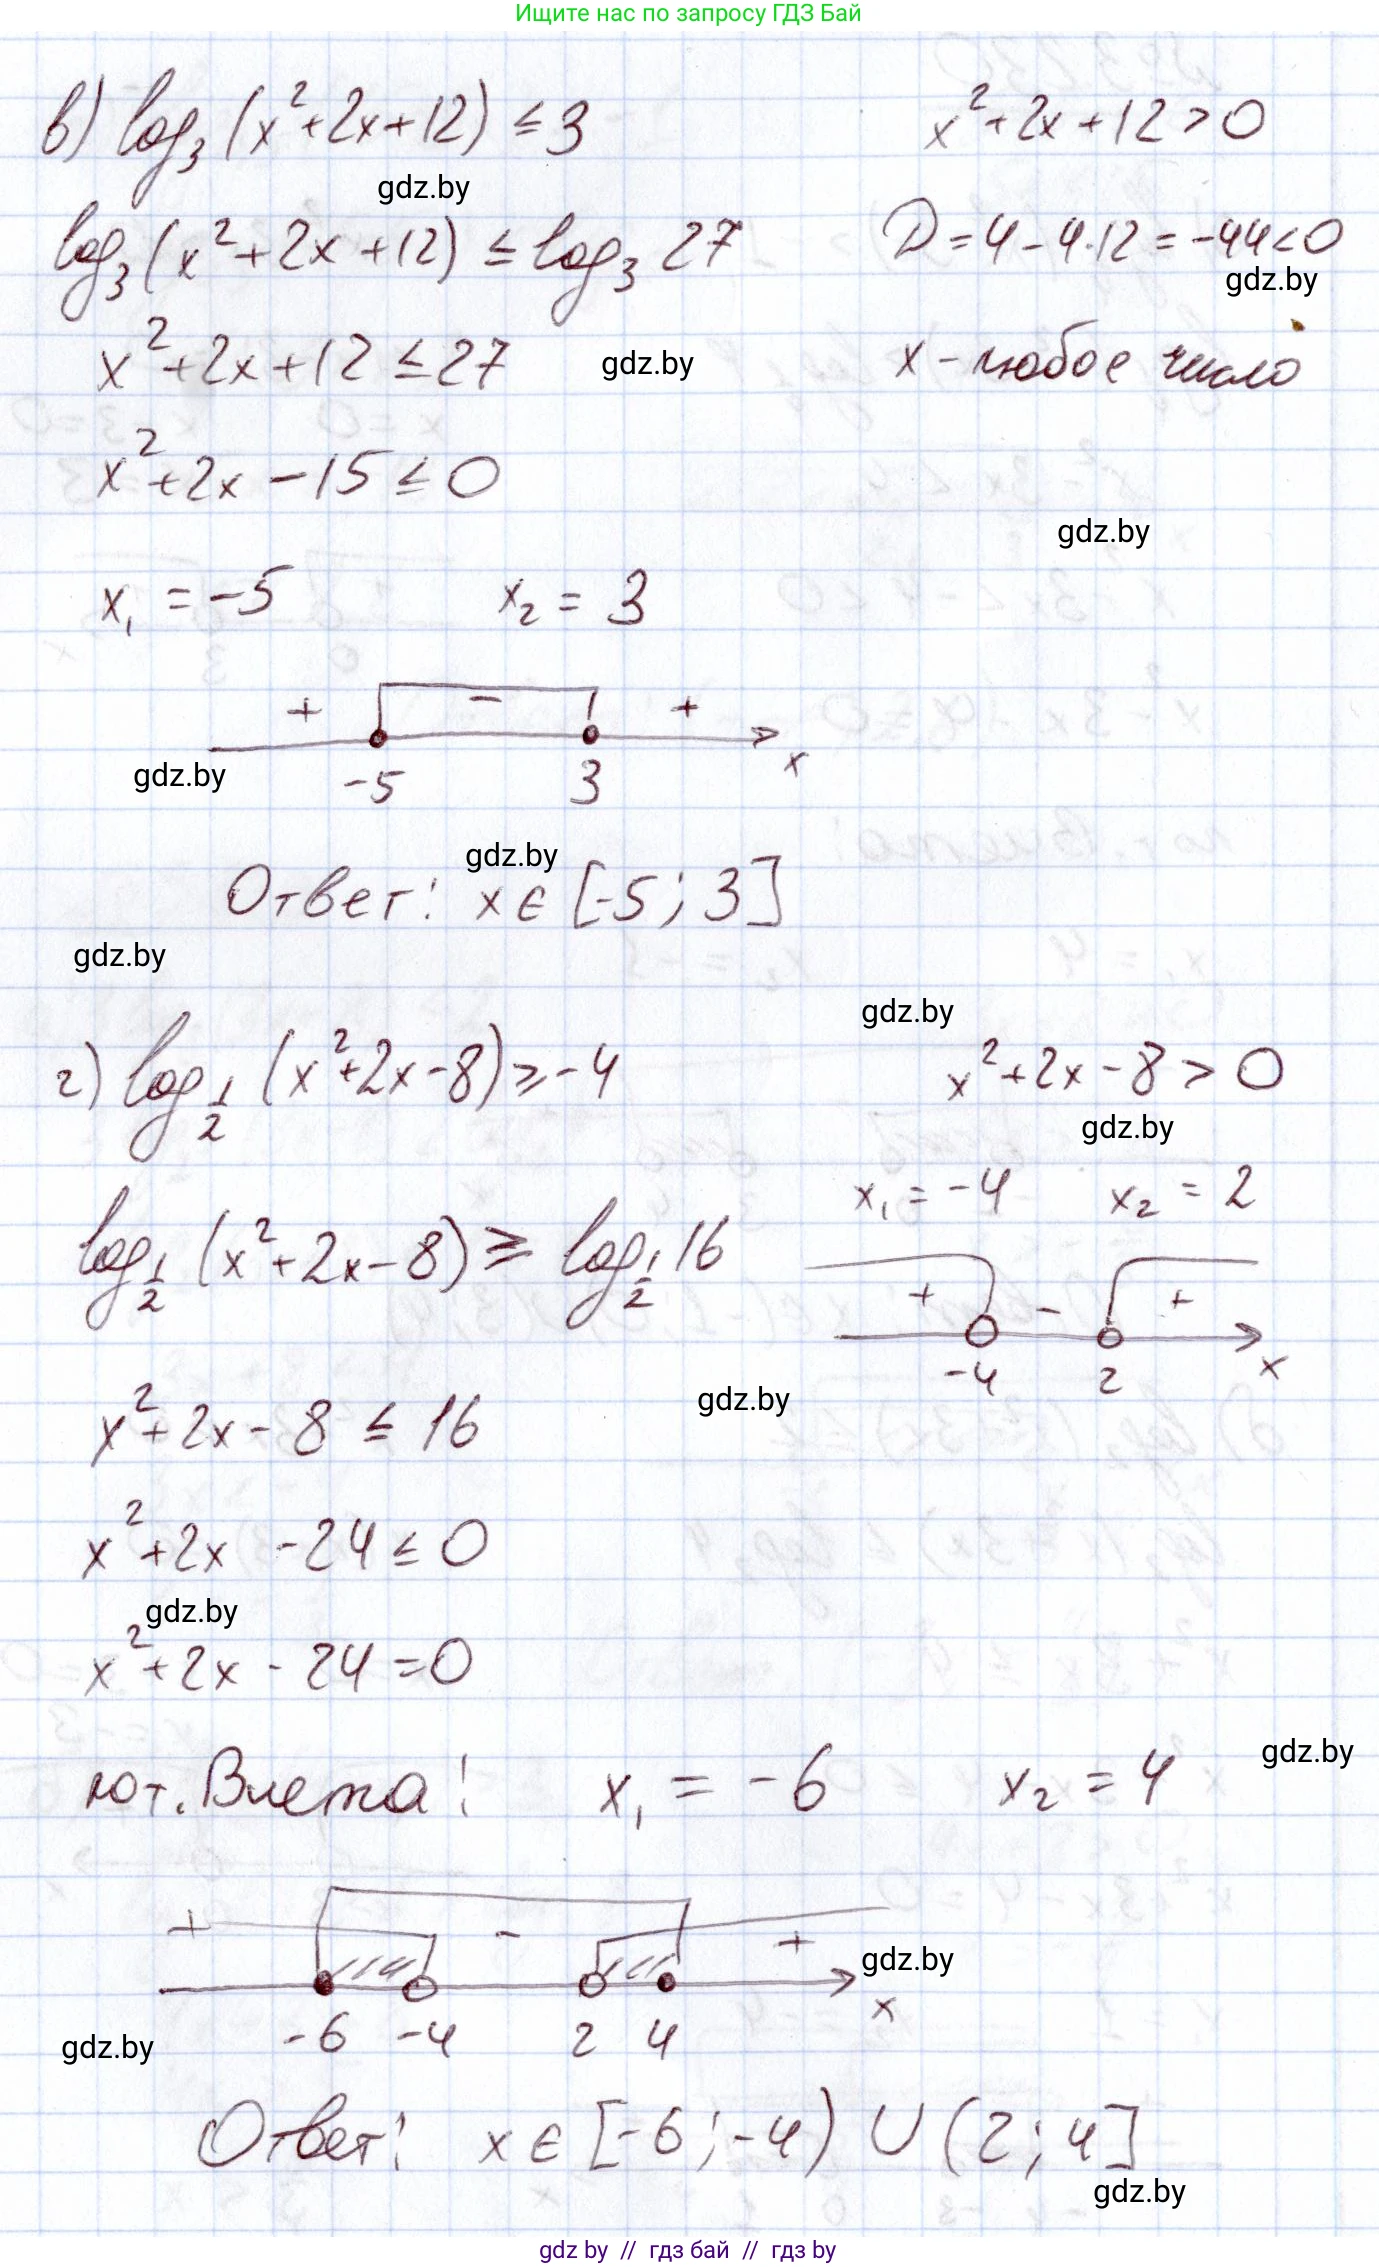 Ищите нас по запросу ГДЗ Бай
в) log₃ (x²+2x+12) ≤ 3
x²+2x+12 > 0
gdz.by
log₃ (x²+2x+12) ≤ log₃ 27
D = 4 - 4·12 = -44 < 0
gdz.by
x²+2x+12 ≤ 27
gdz.by
x - любое число
x²+2x-15 ≤ 0
gdz.by
x₁ = -5 x₂ = 3
+ - +
gdz.by
-5 3 x
gdz.by
Ответ: x ∈ [-5; 3]
gdz.by
gdz.by
г) log_{1/2} (x²+2x-8) ≥ -4
x²+2x-8 > 0
gdz.by
x₁ = -4 x₂ = 2
log_{1/2} (x²+2x-8) ≥ log_{1/2} 16
+ - +
-4 2 x
x²+2x-8 ≤ 16
gdz.by
x²+2x-24 ≤ 0
gdz.by
x²+2x-24=0
gdz.by
по т. Виета: x₁ = -6 x₂ = 4
+ - +
gdz.by
-6 -4 2 4 x
gdz.by
Ответ: x ∈ [-6; -4) ∪ (2; 4]
gdz.by
gdz by // гдз бай // гдз by